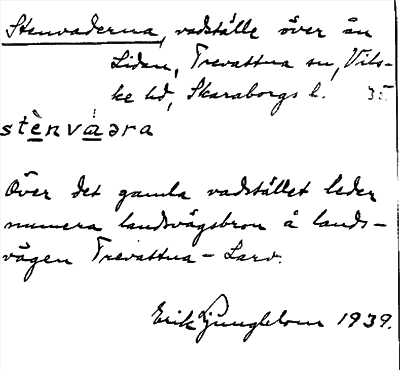 Stenvaderna, vadställe över ån
Lidan, Trevattna sn, Vils-
ke hd, Skaraborgs l. 35.
stènvàəra
Över det gamla vadstället leder
numera landsvägsbron å lands-
vägen Trevattna - Larv.
Erik Ljungblom 1939.